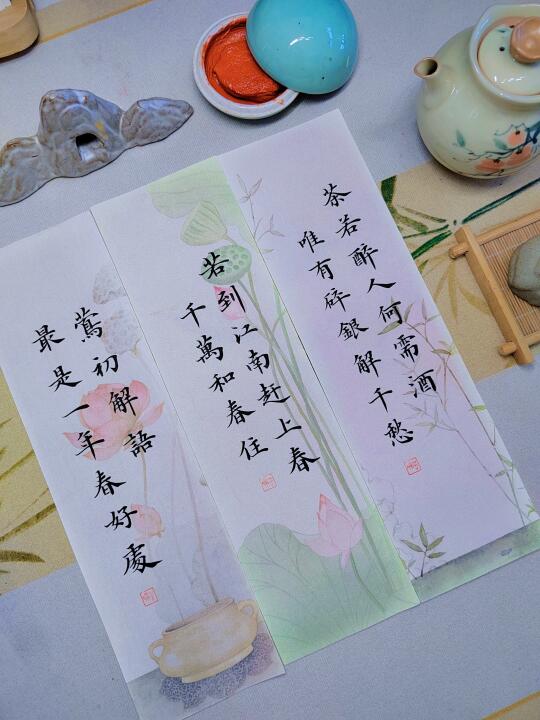 茶若醉人何需酒
唯有碎銀解千愁
若到江南赶上春
千萬和春住
鶯初解語
最是一年春好處